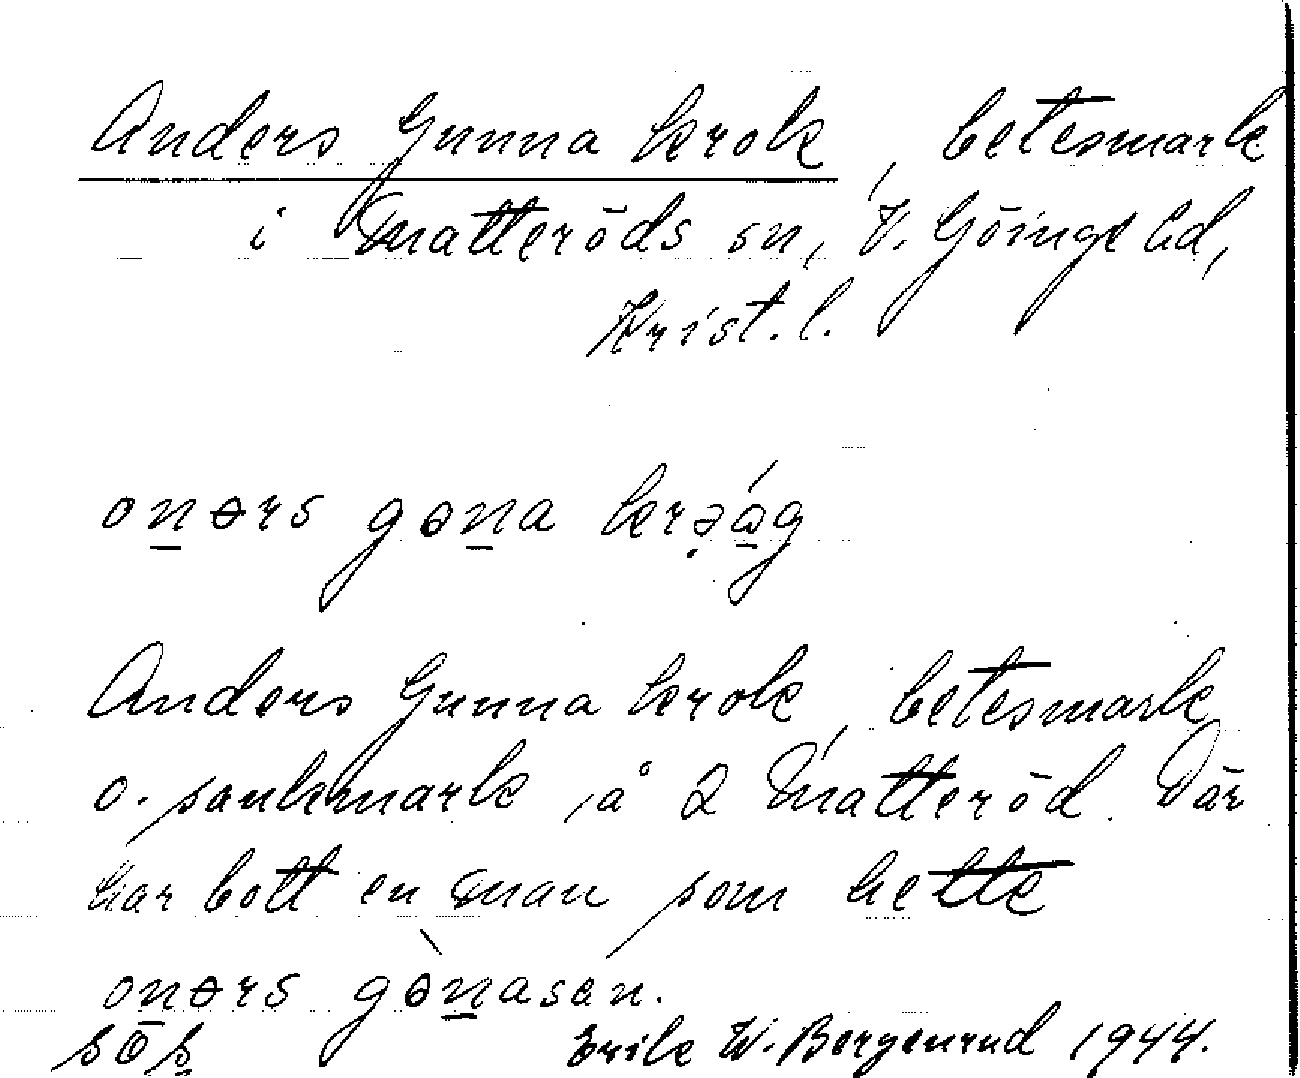 Anders Gunna krok, betesmark
i Matteröds sn, V. Göinge hd,
Krist. l.
onərs gɵna
Anders Gunna krok, betesmark
o. sankmark, å 2 Matteröd. Där
har bott en man som hette
onərs gɵ̀nasen.
Erik W. Bergenrud 1944.